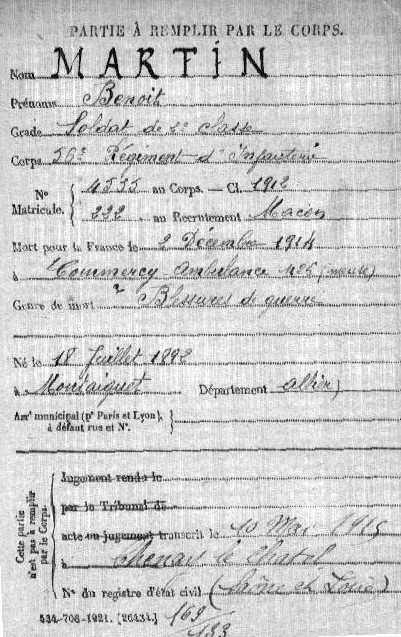 PARTIE À REMPLIR PAR LE CORPS.
Nom MARTIN
Prénoms Benoit
Grade Soldat de 2e Classe
Corps 56e Régiment d'Infanterie
N° Matricule. { 4535 au Corps. — Cl. 1912
232 au Recrutement Macon
Mort pour la France le 2 Décembre 1914
à Commercy Ambulance (Meuse)
Genre de mort Blessures de guerre
Né le 18 Juillet 1892
à Montaiguet Département Allier
Arrt municipal (pr Paris et Lyon),
à défaut rue et N°.
Cette partie n'est pas à remplir par le Corps.
Jugement rendu le
par le Tribunal de
acte ou jugement transcrit le 10 Mai 1915
à Chenay le Chatel
N° du registre d'état civil (Saône et Loire)
534-708-1921. [26434.] 169/133